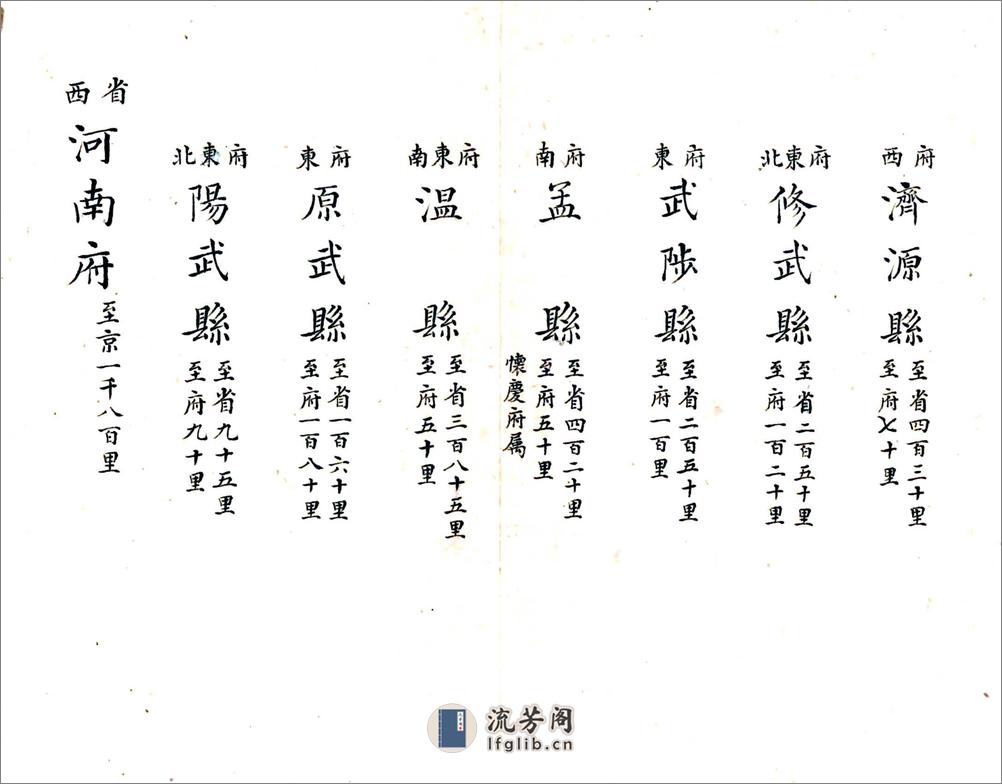 府西
濟源縣
至省四百三十里
至府七十里
府東北
修武縣
至省二百五十里
至府一百二十里
府東
武陟縣
至省二百五十里
至府一百里
府南
孟縣
至省四百二十里
至府五十里
懷慶府属
府東南
温縣
至省三百八十五里
至府五十里
府東
原武縣
至省一百六十里
至府一百八十里
府東北
陽武縣
至省九十五里
至府九十里
省西
河南府
至京一千八百里
流芳阁
lfglib.cn